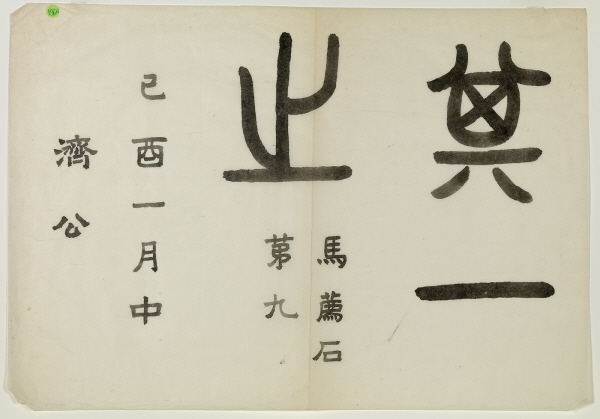 其一
止
馬薦石
第九
己酉一月中
濟公